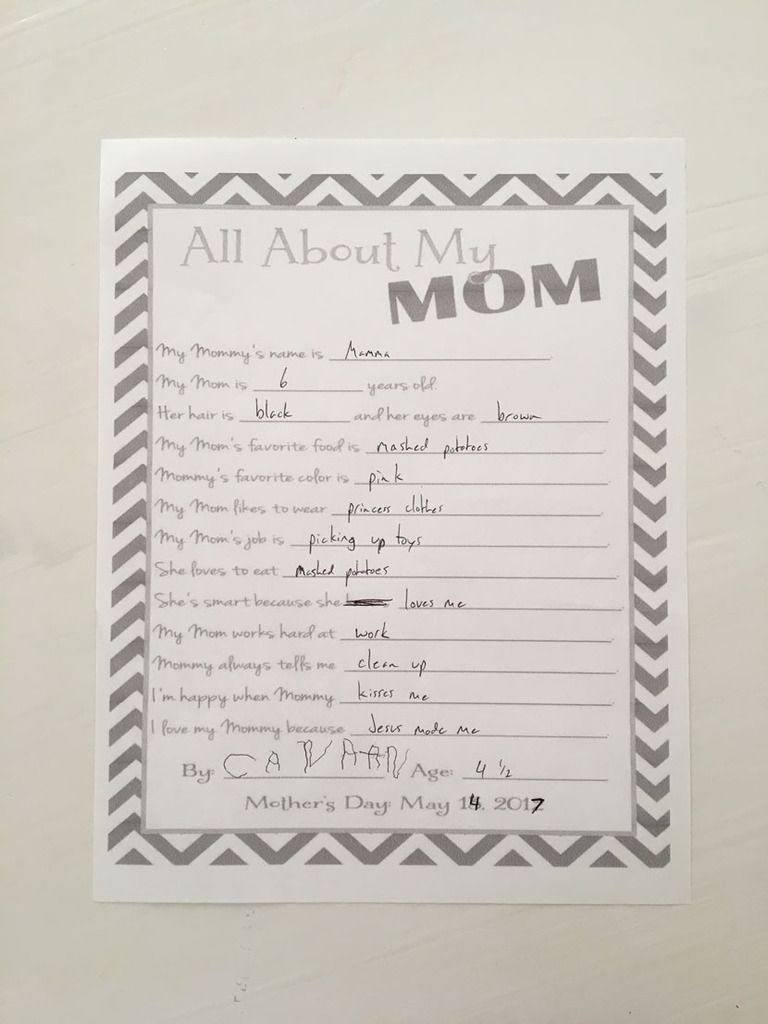 All About My
MOM
My Mommy's name is Mamma.
My Mom is 6 years old.
Her hair is black and her eyes are brown.
My Mom's favorite food is mashed potatoes.
Mommy's favorite color is pink.
My Mom likes to wear princess clothes.
My Mom's job is picking up toys.
She loves to eat mashed potatoes.
She's smart because she loves me.
My Mom works hard at work.
Mommy always tells me clean up.
I'm happy when Mommy kisses me.
I love my Mommy because Jesus made me.
By: Age: 4 1/2
Mother's Day: May 14, 2017